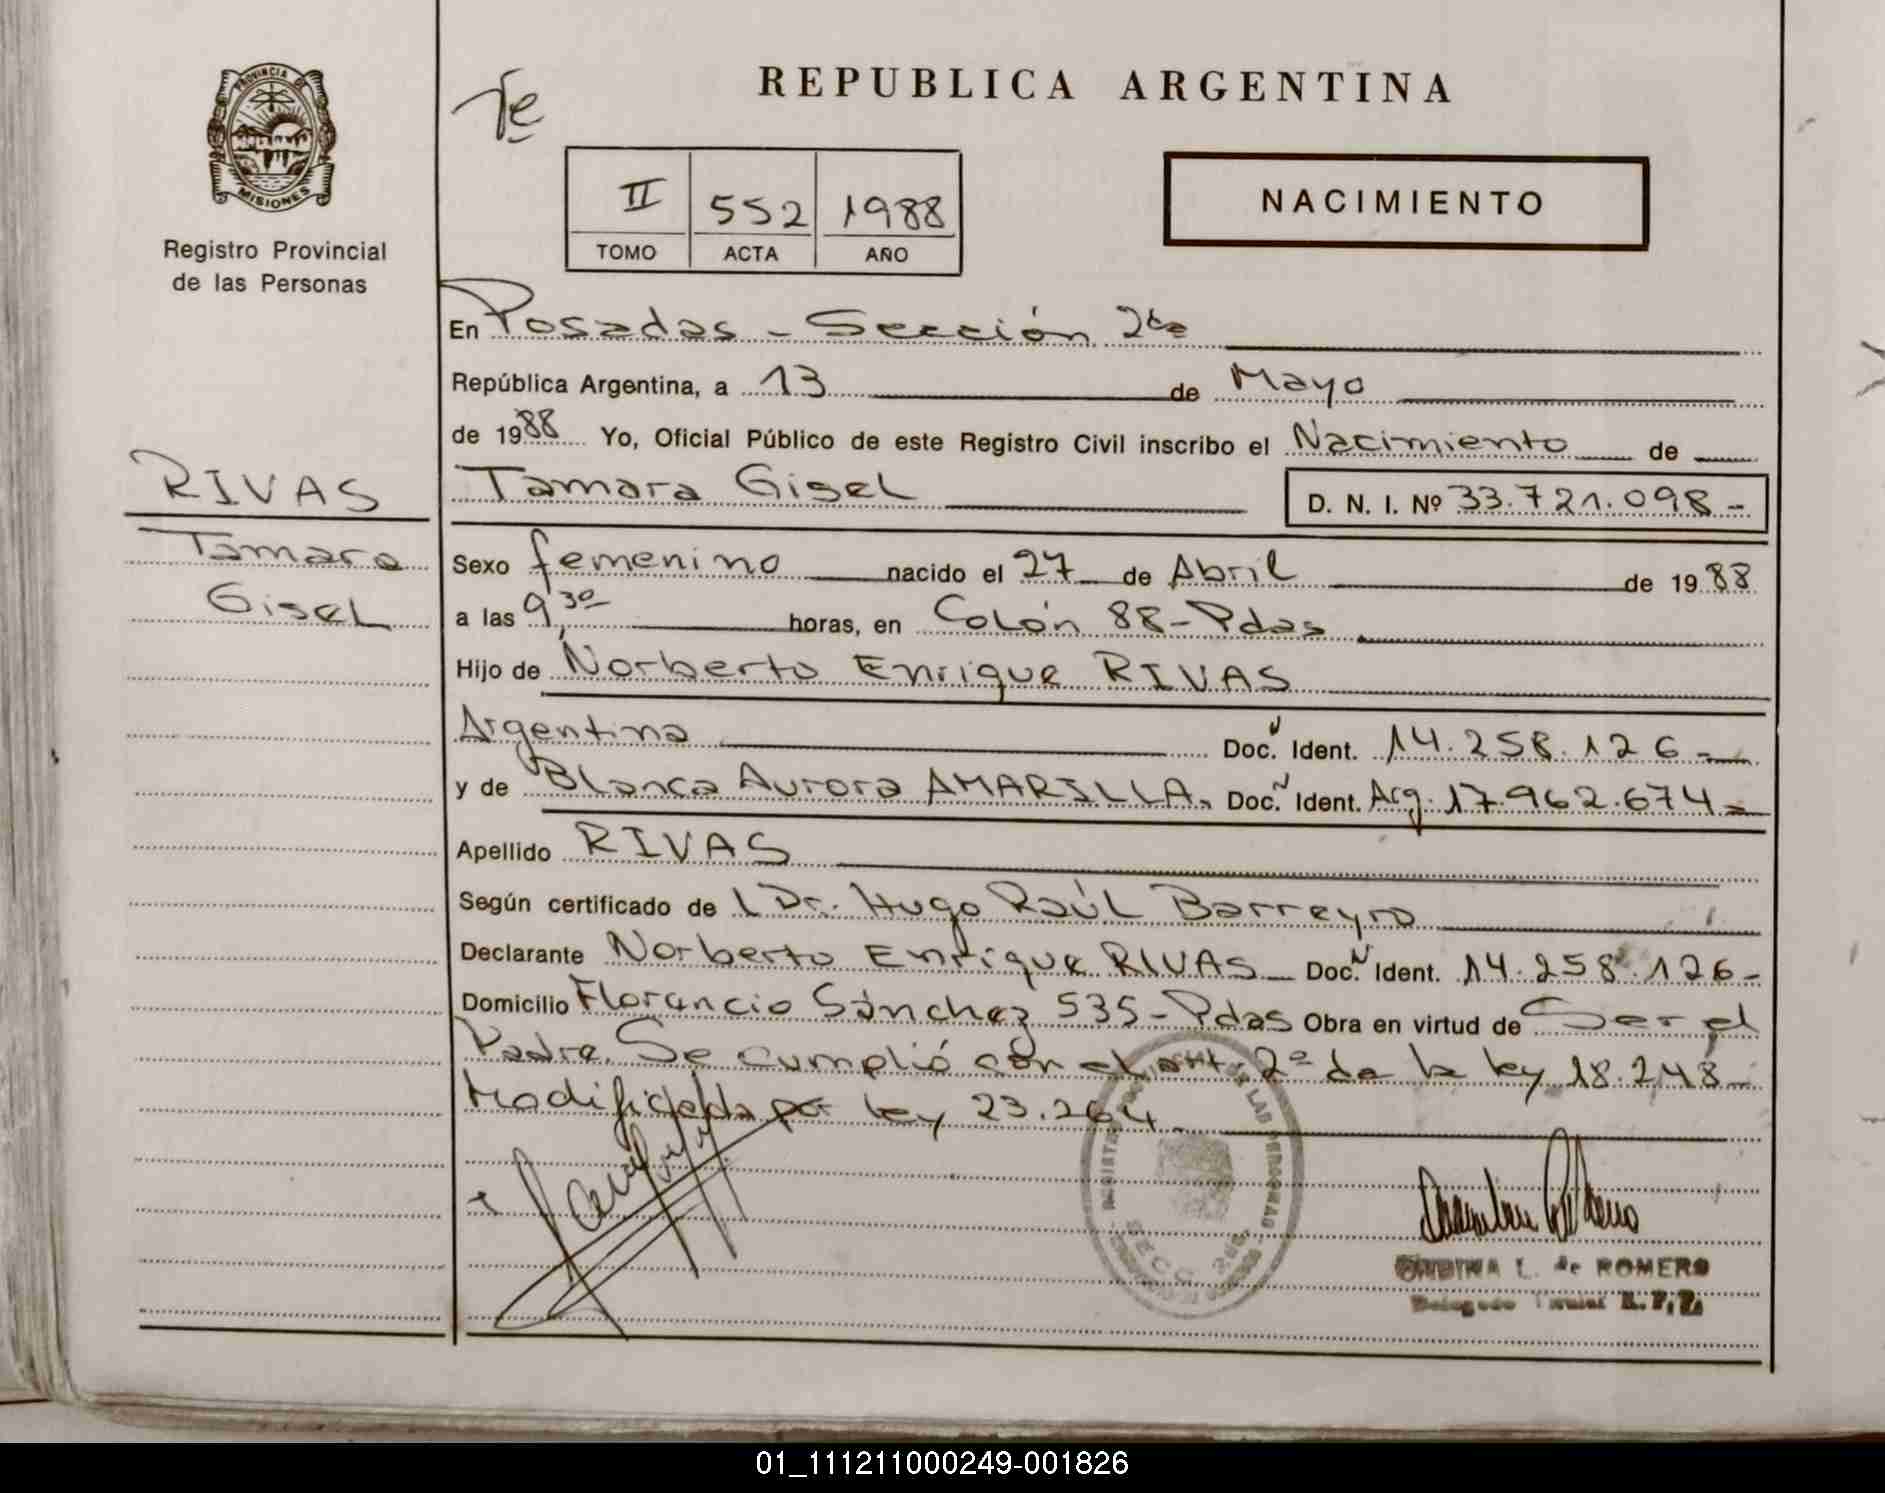 PROVINCIA DE
MISIONES
Registro Provincial
de las Personas
RIVAS
Tamara
Gisel
REPUBLICA ARGENTINA
II 552 1988
TOMO ACTA AÑO
NACIMIENTO
En Posadas - Sección 2da
República Argentina, a 13 de Mayo
de 1988 Yo, Oficial Público de este Registro Civil inscribo el Nacimiento de
Tamara Gisel D. N. I. Nº 33.721.098-
Sexo femenino nacido el 27 de Abril de 1988
a las 9,30 horas, en Colón 88-Pdas
Hijo de Norberto Enrique RIVAS
Argentina Doc. Ident. 14.258.126-
y de Blanca Aurora AMARILLA. Doc. Ident. Arg. 17.962.674-
Apellido RIVAS
Según certificado de l Dr. Hugo Raúl Barreyro
Declarante Norberto Enrique RIVAS - Doc. Ident. 14.258.126-
Domicilio Florencio Sánchez 535-Pdas Obra en virtud de Ser el
Padre. Se cumplió con el art. 2º de la ley 18.248-
Modificada por ley 23.264.
L. de ROMERO
01_111211000249-001826